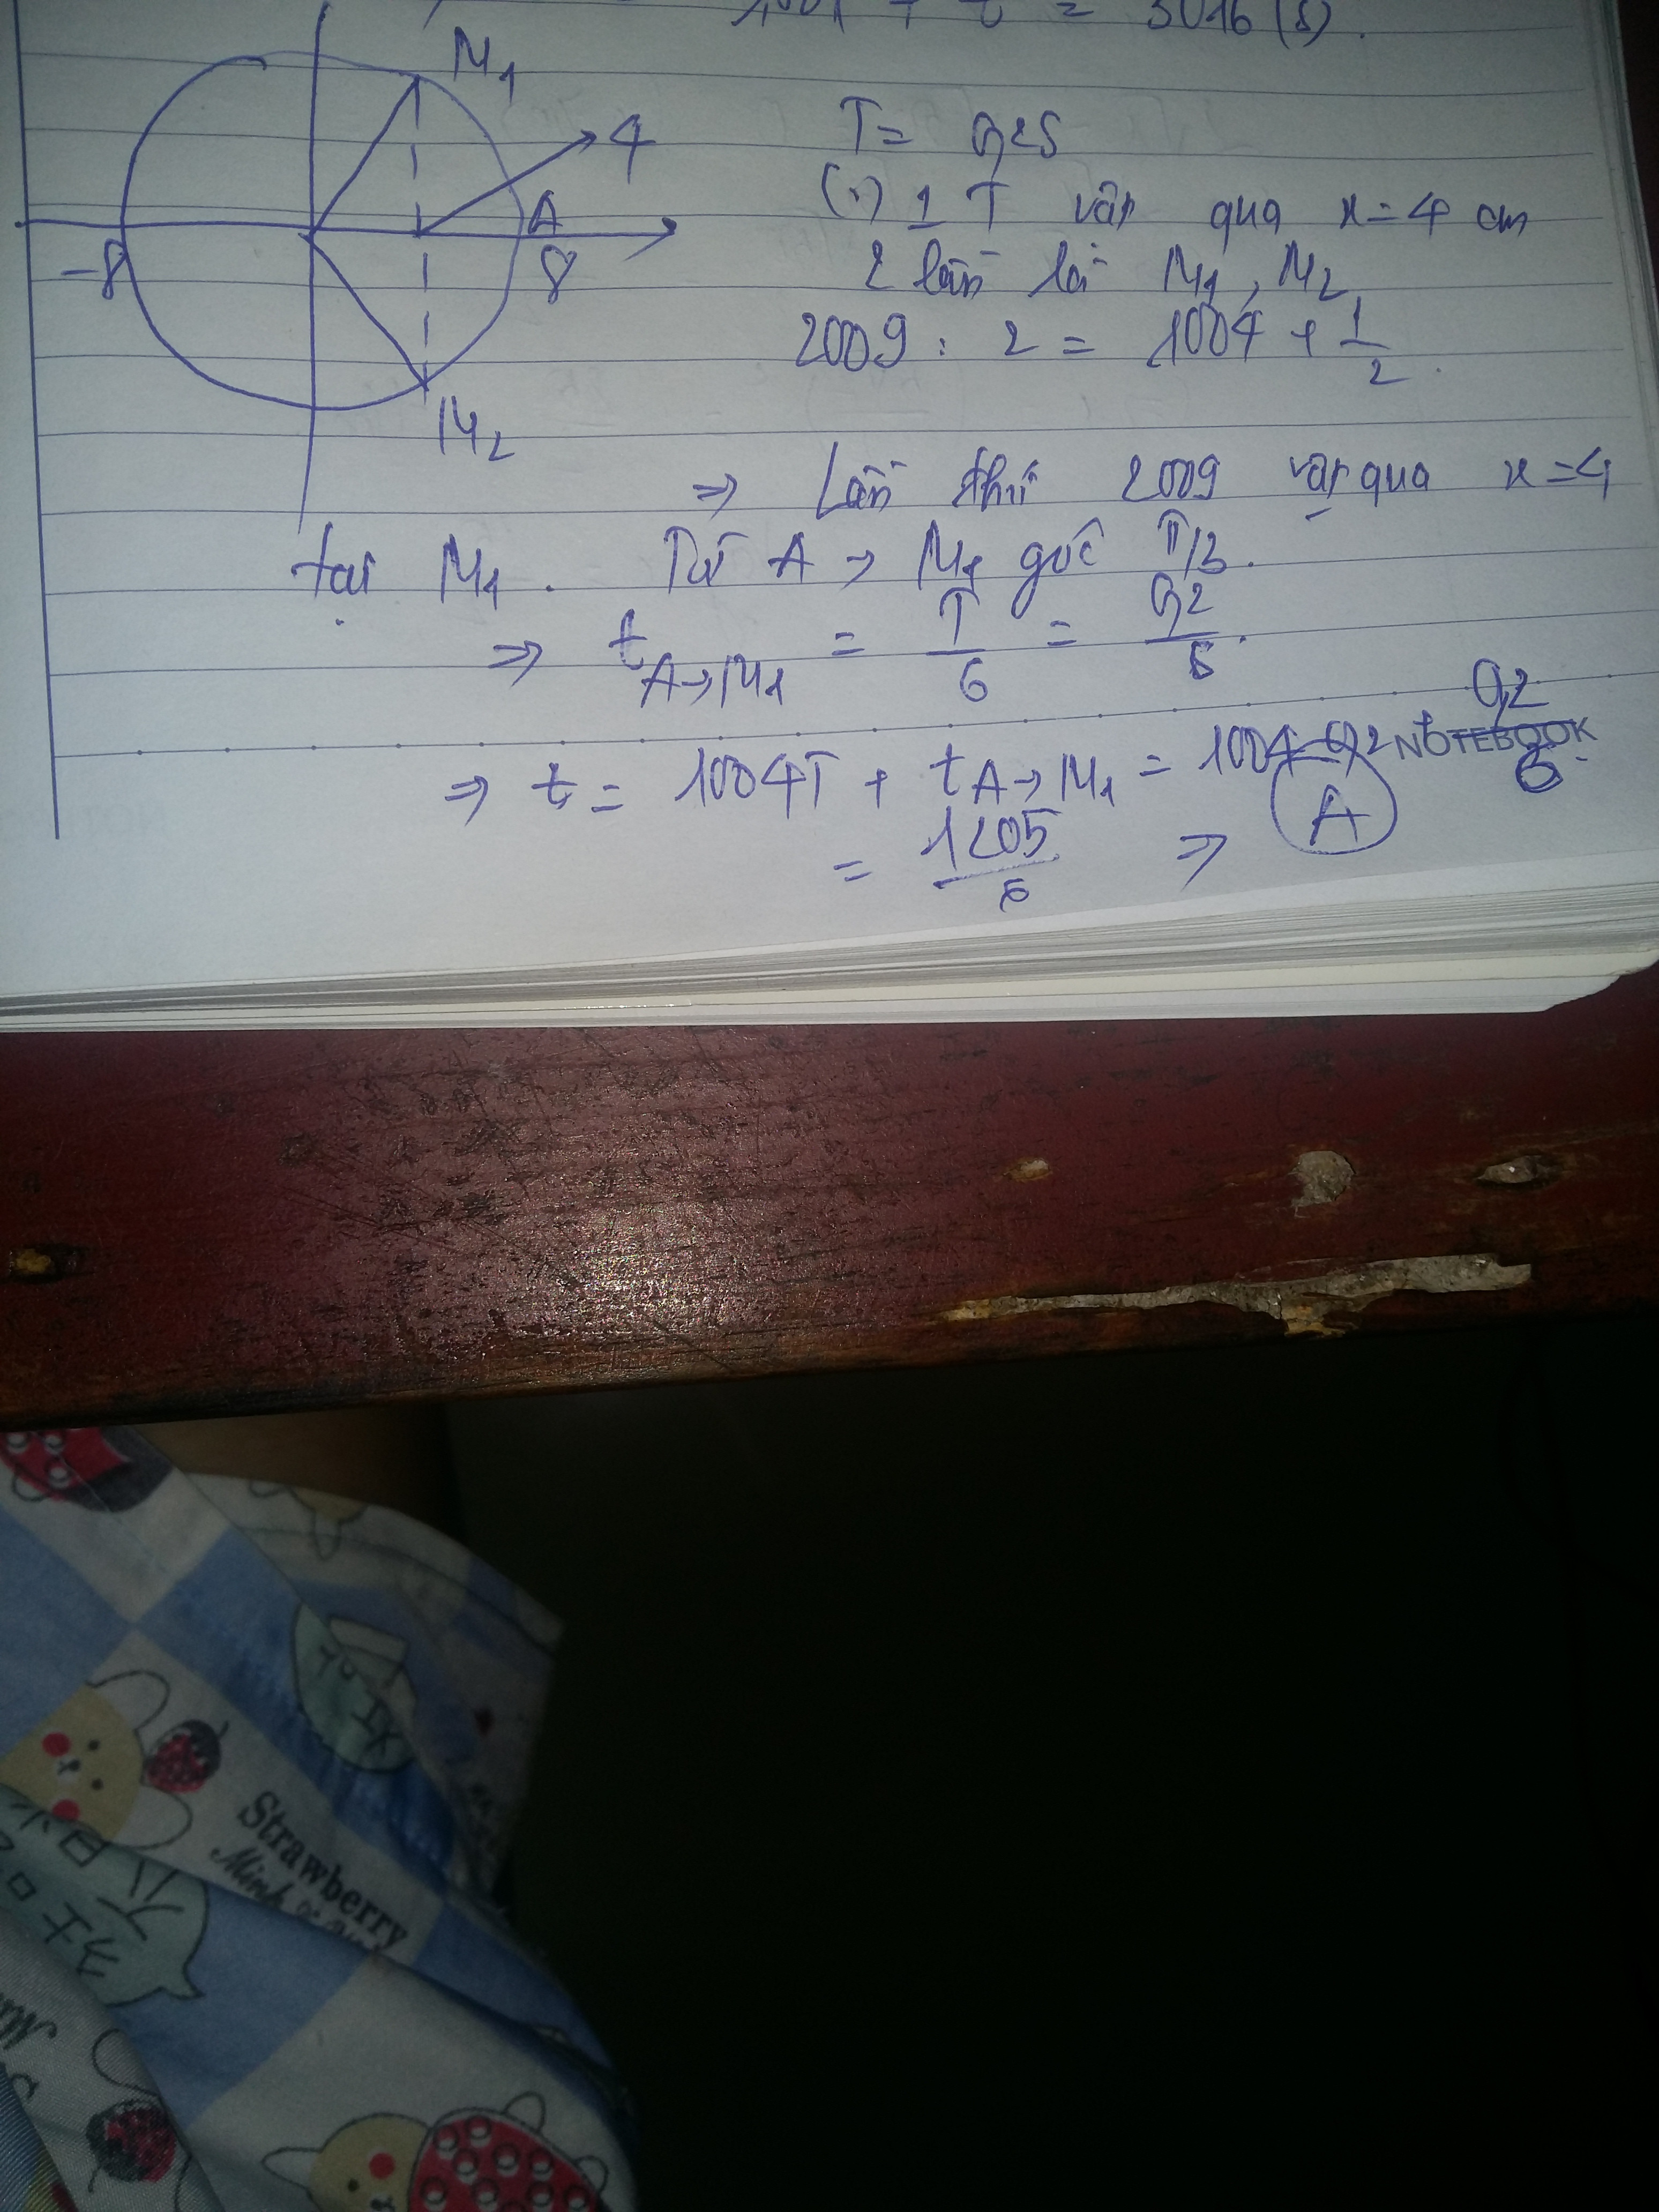 + t = 3016 (s).
M1
4
A
-8
8
M2
T = 0,2s
(.) 1 T vật qua x = 4 cm
2 lần là M1, M2
2009 : 2 = 1004 + 1/2
⇒ Lần thứ 2009 vật qua x = 4
tại M1. Từ A → M1 góc π/3.
⇒ t A→M1 = T/6 = 0,2/6.
⇒ t = 1004T + t A→M1 = 1004.0,2 + 0,2/6
NOTEBOOK
= 1205/6 ⇒ A
Strawberry